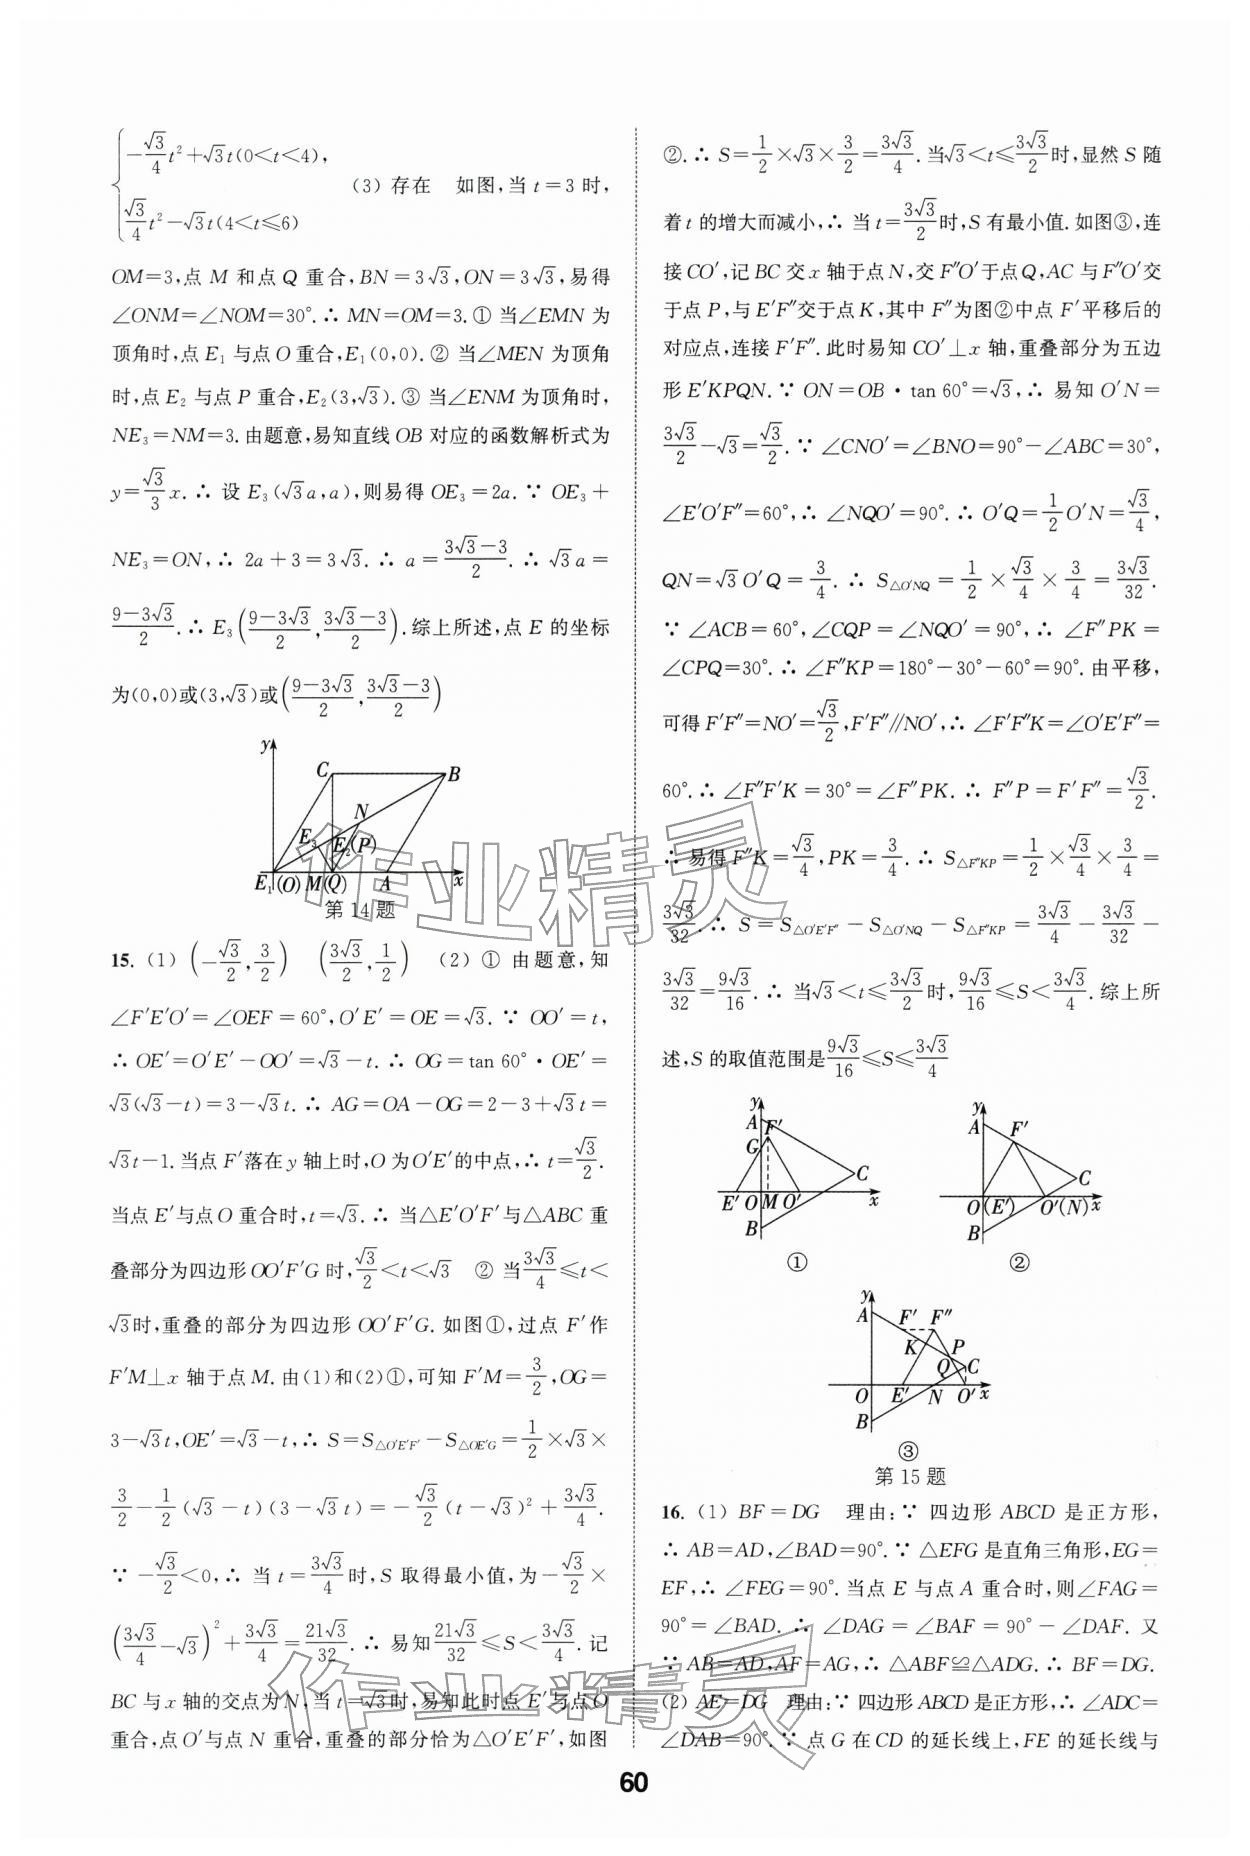 {−√3/4 t²+√3t(0<t<4),
√3/4 t²−√3t(4<t≤6)
(3) 存在 如图,当 t=3 时,
OM=3,点 M 和点 Q 重合,BN=3√3,ON=3√3,易得
∠ONM=∠NOM=30°.∴ MN=OM=3.① 当∠EMN 为
顶角时,点 E₁ 与点 O 重合,E₁(0,0).② 当∠MEN 为顶角
时,点 E₂ 与点 P 重合,E₂(3,√3).③ 当∠ENM 为顶角时,
NE₃=NM=3.由题意,易知直线 OB 对应的函数解析式为
y=√3/3 x.∴ 设 E₃(√3a,a),则易得 OE₃=2a.∵ OE₃+
NE₃=ON,∴ 2a+3=3√3.∴ a=(3√3−3)/2.∴ √3a=
(9−3√3)/2.∴ E₃((9−3√3)/2,(3√3−3)/2).综上所述,点 E 的坐标
为(0,0)或(3,√3)或((9−3√3)/2,(3√3−3)/2)
y
C B
N
E₃ E₂(P)
E₁(O) M(Q) A x
第14题
15. (1) (−√3/2,3/2) (3√3/2,1/2) (2) ① 由题意,知
∠F′E′O′=∠OEF=60°,O′E′=OE=√3.∵ OO′=t,
∴ OE′=O′E′−OO′=√3−t.∴ OG=tan 60°·OE′=
√3(√3−t)=3−√3t.∴ AG=OA−OG=2−3+√3t=
√3t−1.当点 F′落在 y 轴上时,O 为O′E′的中点,∴ t=√3/2.
当点 E′与点 O 重合时,t=√3.∴ 当△E′O′F′与△ABC 重
叠部分为四边形 OO′F′G 时,√3/2<t<√3 ② 当3√3/4≤t<
√3时,重叠的部分为四边形 OO′F′G.如图①,过点 F′作
F′M⊥x 轴于点 M.由(1)和(2)①,可知 F′M=3/2,OG=
3−√3t,OE′=√3−t,∴ S=S△O′E′F′−S△OE′G=1/2×√3×
3/2−1/2(√3−t)(3−√3t)=−√3/2(t−√3)²+3√3/4.
∵ −√3/2<0,∴ 当 t=3√3/4时,S 取得最小值,为−√3/2×
(3√3/4−√3)²+3√3/4=21√3/32.∴ 易知21√3/32≤S<3√3/4.记
BC 与 x 轴的交点为 N,当 t=√3时,易知此时点 E′与点 O
重合,点 O′与点 N 重合,重叠的部分恰为△O′E′F′,如图
②.∴ S=1/2×√3×3/2=3√3/4.当√3<t≤3√3/2时,显然 S 随
着 t 的增大而减小,∴ 当 t=3√3/2时,S 有最小值.如图③,连
接 CO′,记 BC 交 x 轴于点 N,交 F″O′于点 Q,AC 与 F″O′交
于点 P,与 E′F″交于点 K,其中 F″为图②中点 F′平移后的
对应点,连接 F′F″.此时易知 CO′⊥x 轴,重叠部分为五边
形 E′KPQN.∵ ON=OB·tan 60°=√3,∴ 易知 O′N=
3√3/2−√3=√3/2.∵ ∠CNO′=∠BNO=90°−∠ABC=30°,
∠E′O′F″=60°,∴ ∠NQO′=90°.∴ O′Q=1/2 O′N=√3/4,
QN=√3O′Q=3/4.∴ S△O′NQ=1/2×√3/4×3/4=3√3/32.
∵ ∠ACB=60°,∠CQP=∠NQO′=90°,∴ ∠F″PK=
∠CPQ=30°.∴ ∠F″KP=180°−30°−60°=90°.由平移,
可得 F′F″=NO′=√3/2,F′F″∥NO′,∴ ∠F′F″K=∠O′E′F″=
60°.∴ ∠F″F′K=30°=∠F″PK.∴ F″P=F′F″=√3/2.
∴ 易得 F″K=√3/4,PK=3/4.∴ S△F″KP=1/2×√3/4×3/4=
3√3/32.∴ S=S△O′E′F″−S△O′NQ−S△F″KP=3√3/4−3√3/32−
3√3/32=9√3/16.∴ 当√3<t≤3√3/2时,9√3/16≤S<3√3/4.综上所
述,S 的取值范围是9√3/16≤S≤3√3/4
y
A F′
G
C
E′ O M O′ x
B
①
y
A F′
C
O(E′) O′(N) x
B
②
y
A F′ F″
K P
Q C
O E′ N O′ x
B
③
第15题
16. (1) BF=DG 理由:∵ 四边形 ABCD 是正方形,
∴ AB=AD,∠BAD=90°.∵ △EFG 是直角三角形,EG=
EF,∴ ∠FEG=90°.当点 E 与点 A 重合时,则∠FAG=
90°=∠BAD.∴ ∠DAG=∠BAF=90°−∠DAF.又
∵ AB=AD,AF=AG,∴ △ABF≌△ADG.∴ BF=DG.
(2) AE=DG 理由:∵ 四边形 ABCD 是正方形,∴ ∠ADC=
∠DAB=90°.∵ 点 G 在 CD 的延长线上,FE 的延长线与
60
作业精灵
作业精灵